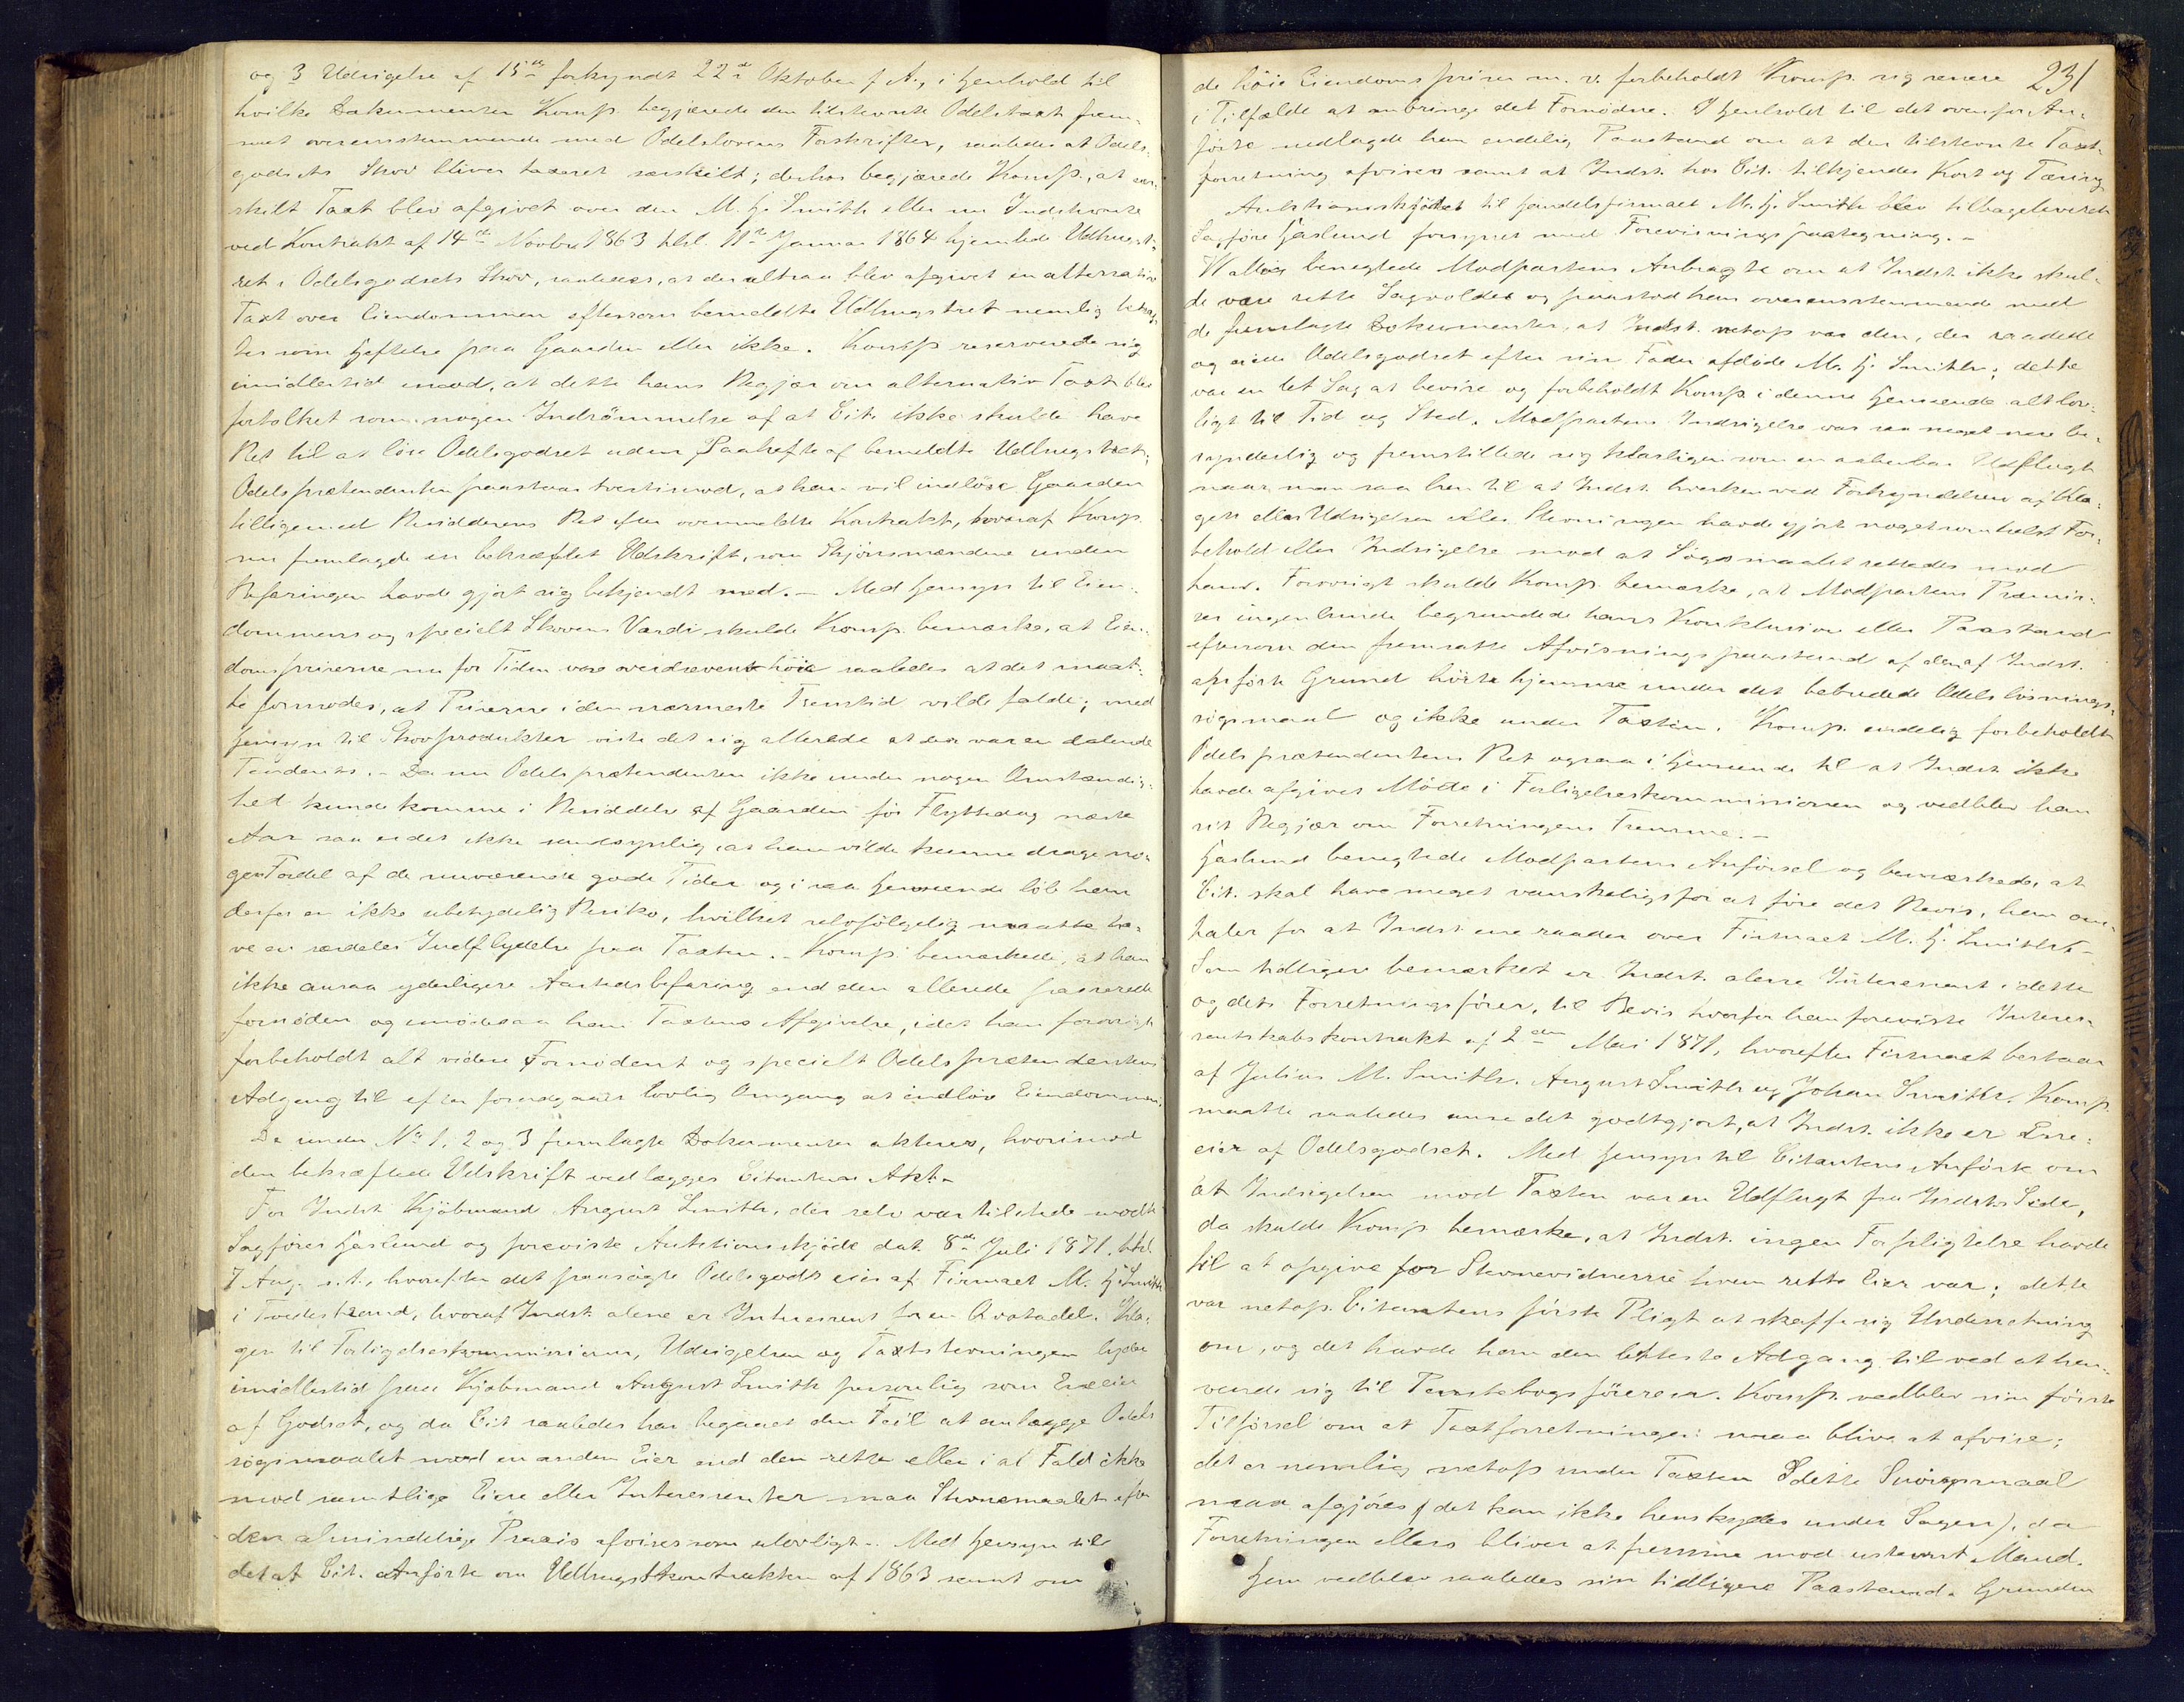 og 3 Udsigelse af 15de forkyndt 22de Oktober f. A., i Henhold til
hvilke Dokumenter Komp. begjærede den tilstevnte Odelstaxt frem-
met overensstemmende med Odelslovens Forskrifter, saaledes at Odels-
godsets Skov bliver taxeret særskilt; derhos begjærede Komp., at sær-
skilt Taxt blev afgivet over den M. H. Smith eller nu Indstevnte
ved Kontrakt af 14de Novbr 1863 thl. 11te Januar 1864 hjemlede Udhugst-
ret i Odelsgodsets Skov, saaledes, at der altsaa blev afgivet en alternativ
Taxt over Eiendommen eftersom bemeldte Udhugstret nemlig betrag-
tes som Heftelse paa Gaarden eller ikke. Komp. reserverede sig
imidlertid imod, at dette hans Begjær om alternativ Taxt blev
fortolket som nogen Indrömmelse af at Cit. ikke skulde have
Ret til at löse Odelsgodset uden Paahefte af bemeldte Udhugstret.
Odelsprætendenten paastaar tvertimod, at han vil indlöse Gaarden
tilligemed Besidderens Ret efter ovenmeldte Kontrakt, hvoraf Komp.
nu fremlagde en bekræftet Udskrift, som Skjönsmændene under
Befaringen havde gjort sig bekjendt med. – Med Hensyn til Eien-
dommens og specielt Skovens Værdi skulde Komp. bemærke, at Eien-
domspriserne nu for Tiden vare overdrevent höie saaledes at det maat-
te formodes, at Priserne i den nærmeste Fremtid vilde falde; med
Hensyn til Skovprodukter viste det sig allerede at der var en dalende
Tendents. – Da nu Odelsprætendenten ikke under nogen Omstændig-
het kunde komme i Besiddelse af Gaarden för Flyttedag næste
Aar saa er det ikke sandsynlig, at han vilde kunne drage no-
gen Fordel af de nuværende gode Tider og i saa Henseende löb han
derfor en ikke ubetydelig Risiko, hvilket selvfölgelig maatte ha-
ve en særdeles Indflydelse paa Taxten. – Komp. bemærkede, at han
ikke ansaa yderligere Aastedsbefaring end den allerede passerede
fornöden og imödesaa han Taxtens Afgivelse, idet han forövrigt
forbeholdt alt videre Fornödent og specielt Odelsprætendentens
Adgang til efter foregaaet lovlig Omgang at indlöse Eiendommen.
De under No 1, 2 og 3 fremlagte Dokumenter akteres, hvorimod
den bekræftede Udskrift vedlægges Citantens Akt. –
For Indst. Kjöbmand August Smith, der selv var tilstede mödte
Sagförer Haslund og foreviste Auktionsskjöde dat. 8de Juli 1871, thl.
7 Aug. s. A., hvorefter det paasögte Odelsgods eies af Firmaet M. H. Smith
i Tvedestrand, hvoraf Indst. alene er Interessent for en Qvotadel. Kla-
gen til Forligelseskommissionen, Udsigelsen og Taxtstevningen lyder
imidlertid paa Kjöbmand August Smith personlig som Eneeier
af Godset, og da Cit. saaledes har begaaet den Feil at anlægge Odels-
sögsmaalet mod en anden Eier end den rette eller i al Fald ikke
mod samtlige Eiere eller Interessenter maa Stevnemaalet efter
den almindelige Praxis afvises som ulovligt. – Med Hensyn til
det af Cit. Anförte om Udhugstkontrakten af 1863 samt om
231
de höie Eiendomspriser m. v. forbeholdt Komp. sig senere
i Tilfælde at anbringe det Fornödne. I Henhold til det ovenfor An-
förte nedlagde han endelig Paastand om at den tilstevnte Taxt-
forretning afvises samt at Indst. hos Cit. tilkjendes Kost og Tæring.
Auktionsskjödet til Handelsfirmaet M. H. Smith blev tilbageleveret
Sagförer Haslund forsynet med Forevisningspaategning. –
Wallöe benegtede Modpartens Anbragte om at Indst. ikke skul-
de være rette Sagvolder og paastod han overensstemmende med
de fremlagte Dokumenter, at Indst. netop var den, der raadede
og eiede Odelsgodset efter sin Fader afdöde M. H. Smith; dette
var en let Sag at bevise og forbeholdt Komp. i denne Henseende alt lov-
ligt til Tid og Sted. Modpartens Indsigelse var saa meget mere be-
synderlig og fremstillede sig klarligen som en aabenbar Udflugt
naar man saa hen til at Indst. hverken ved Forkyndelsen af Kla-
gen eller Udsigelsen eller Stevningen havde gjort nogetsomhelst For-
behold eller Indsigelse mod at Sögsmaalet rettedes mod
ham. Forövrigt skulde Komp. bemærke, at Modpartens Præmis-
ser ingenlunde begrundede hans Konklusion eller Paastand
eftersom den fremsatte Afvisningspaastand af den af Indst.
anförte Grund hörte hjemme under det bebudede Odelslösnings-
sögsmaal og ikke under Taxten. Komp. endelig forbeholdt
Odelsprætendentens Ret ogsaa i Henseende til at Indst. ikke
havde afgivet Möde i Forligelseskommissionen og vedblev han
sit Begjær om Forretningens Fremme. –
Haslund benegtede Modpartens Anförsel og bemærkede, at
Cit. skal have meget vanskeligt for at före det Bevis, han om-
taler for at Indst. ene raader over Firmaet M. H. Smith. –
Som tidligere bemærket er Indst. alene Interessent i dette
og dets Forretningsförer, til Bevis hvorfor han foreviste Interes-
sentskabskontrakt af 2den Mai 1871, hvorefter Firmaet bestaar
af Julius M. Smith, August Smith og Johan Smith. Komp.
maatte saaledes anse det godtgjort, at Indst. ikke er Ene-
eier af Odelsgodset. Med Hensyn til Citantens Anförte om
at Indsigelsen mod Taxten var en Udflugt fra Indsts Side,
da skulde Komp. bemærke, at Indst. ingen Forpligtelse havde
til at opgive for Stevnevidnerne hvem rette Eier var; dette
var netop Citantens förste Pligt at skaffe sig Underretning
om, og det havde han den letteste Adgang til ved at hen-
vende sig til Pantebogsföreren. Komp. vedblev sin förste
Tilförsel om at Taxtforretningen maa blive at afvise;
det er nemlig netop under Taxten dette Spörgsmaal
maa afgjöres (det kan ikke henskydes under Sagen), da
Forretningen ellers bliver at fremme mod ustevnt Mand.
Han vedblev saaledes sin tidligere Paastand. Grunden